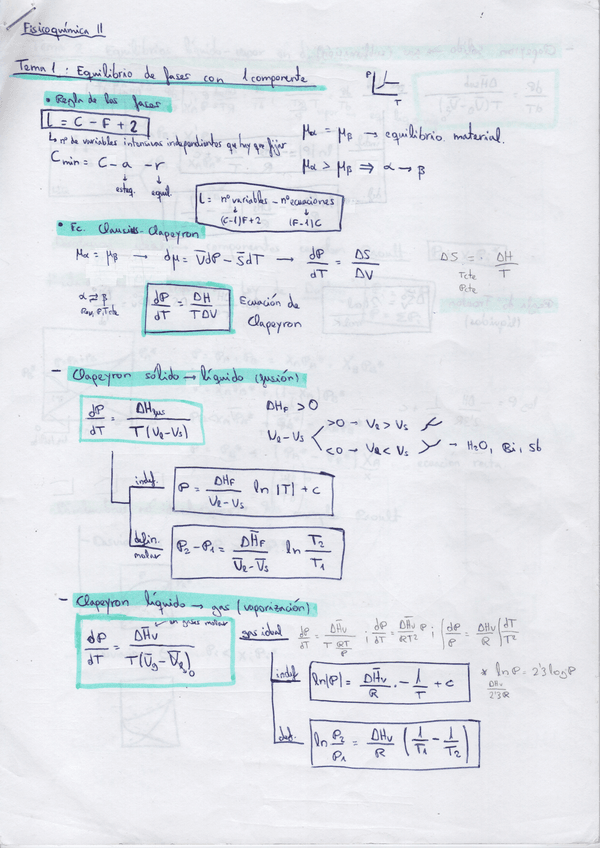 Fisicoquímica II
Tema 1: Equilibrio de fases con 1 componente
P
T
• Regla de las fases
L = C - F + 2
↳ nº de variables intensivas independientes que hay que fijar
μα = μβ → equilibrio material.
Cmin = C - a - r
μα > μβ ⇒ α → β
esteq. equil.
L = nº variables - nº ecuaciones
(C-1)F+2 (F-1)C
• Ec. Clausius-Clapeyron
μα = μβ → dμ = V̄dP - S̄dT → dP/dT = ΔS/ΔV
ΔS = ΔH/T
Tcte
Pcte
α ⇌ β
Rev, P,Tcte
dP/dT = ΔH/TΔV
Ecuación de
Clapeyron
- Clapeyron sólido → líquido (fusión)
dP/dT = ΔHfus/T(Vl-Vs)
ΔHF > 0
Vl-Vs
>0 → Vl > Vs
<0 → Vl < Vs → H2O, Bi, Sb
indef.
P = ΔHF/Vl-Vs ln |T| + c
defin.
molar
P2-P1 = ΔH̄F/V̄l-V̄s ln T2/T1
- Clapeyron líquido → gas (vaporización)
dP/dT = ΔH̄v/T(V̄g-V̄l)
0
gas ideal
dP/dT = ΔH̄v/T RT/P ; dP/dT = ΔH̄v P/RT2 ; ∫dP/P = ΔHv/R ∫dT/T2
indef
ln|P| = ΔH̄v/R · -1/T + c
* ln P = 2'3 log P
ΔHv/2'3R
def.
ln P2/P1 = ΔHv/R (1/T1 - 1/T2)